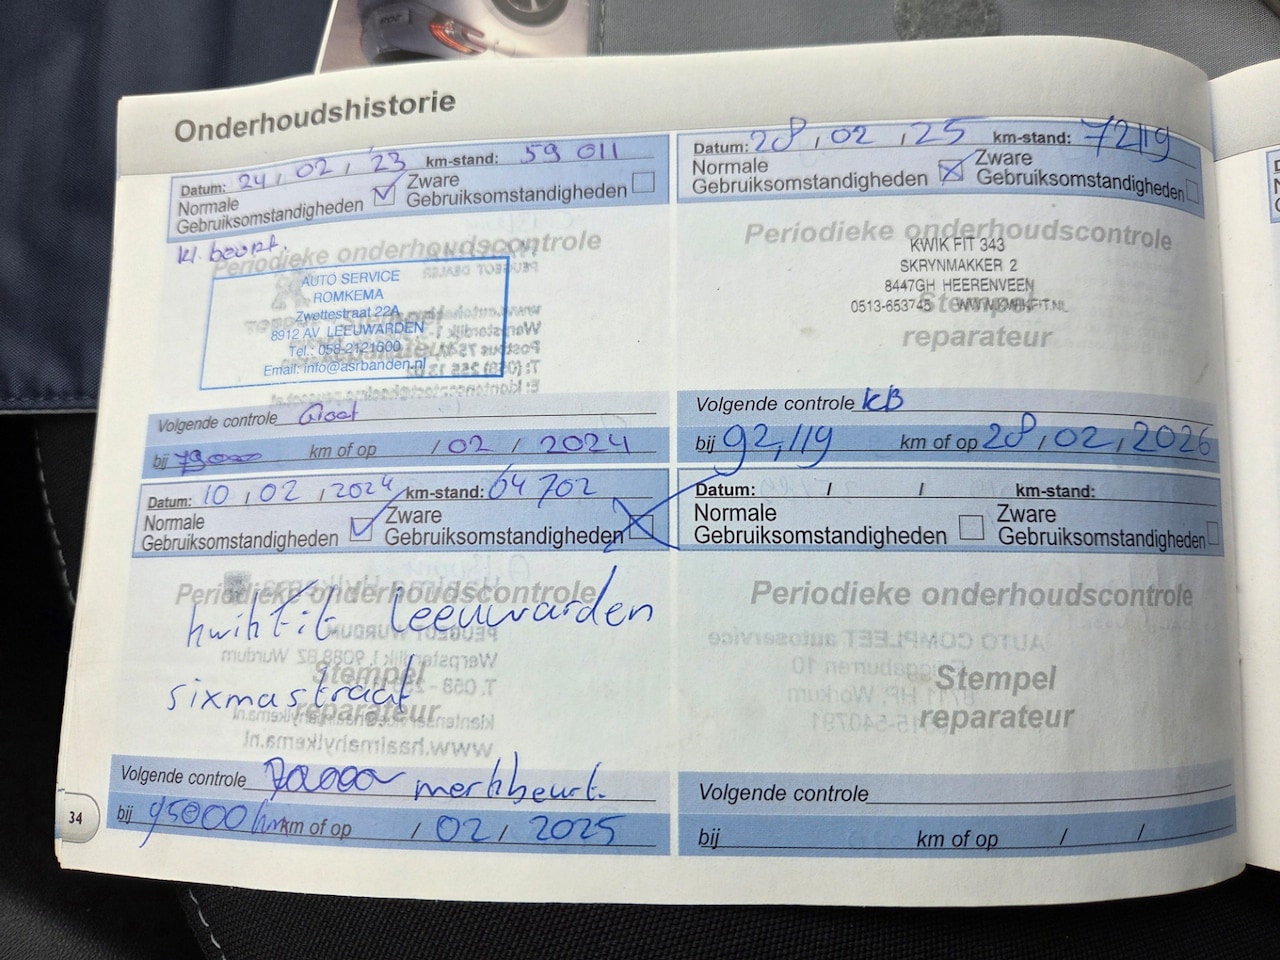 Onderhoudshistorie
Datum: 24 / 02 / '23 km-stand: 59 011
Normale Gebruiksomstandigheden Zware Gebruiksomstandigheden
kl. beurt.
Periodieke onderhoudscontrole
AUTO SERVICE
ROMKEMA
Zwettestraat 22A
8912 AV LEEUWARDEN
Tel.: 058-2121600
Email: info@asrbanden.nl
Volgende controle Groot
bij 79000 km of op / 02 / 2024
Datum: 10 / 02 / 2024 km-stand: 64 702
Normale Gebruiksomstandigheden Zware Gebruiksomstandigheden
Periodieke onderhoudscontrole
kwikfit leeuwarden
Stempel
sixmastraat
reparateur
Volgende controle 70.000 merkbeurt.
bij 95000 km km of op / 02 / 2025
34
Datum: 28 / 02 / 25 km-stand: 72119
Normale Gebruiksomstandigheden Zware Gebruiksomstandigheden
Periodieke onderhoudscontrole
KWIK FIT 343
SKRYNMAKKER 2
8447GH HEERENVEEN
Stempel
0513-653745 WWW.KWIKFIT.NL
reparateur
Volgende controle KB
bij 92,119 km of op 28 / 02 / 2026
Datum: / / km-stand:
Normale Gebruiksomstandigheden Zware Gebruiksomstandigheden
Periodieke onderhoudscontrole
Stempel
reparateur
Volgende controle
bij km of op / /